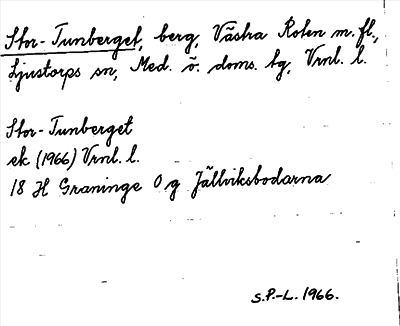 Stor-Tunberget, berg, Västra Roten m. fl.,
Ljustorps sn, Med. ö. doms. tg, Vrnl. l.
Stor-Tunberget
ek (1966) Vrnl. l.
18 H Graninge 0 g Jällviksbodarna
S.P.-L. 1966.